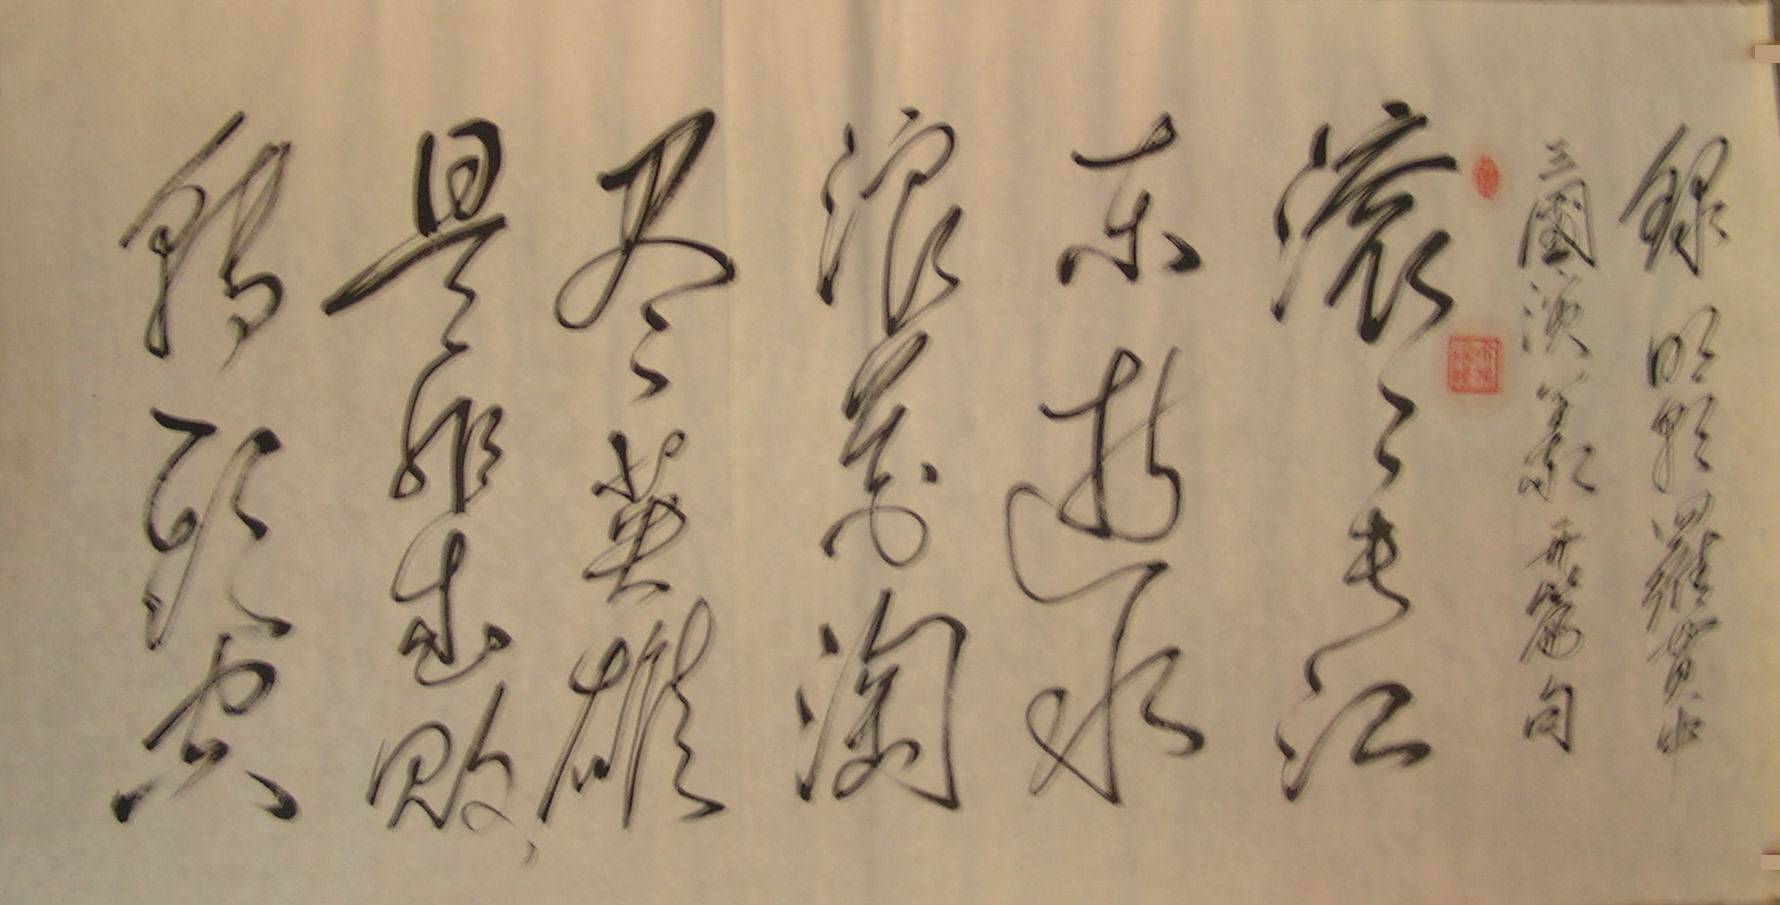 錄明朝羅貫中
三國演義開篇句
滚〻长江
东逝水
浪花淘
尽英雄
是非成败
转头空